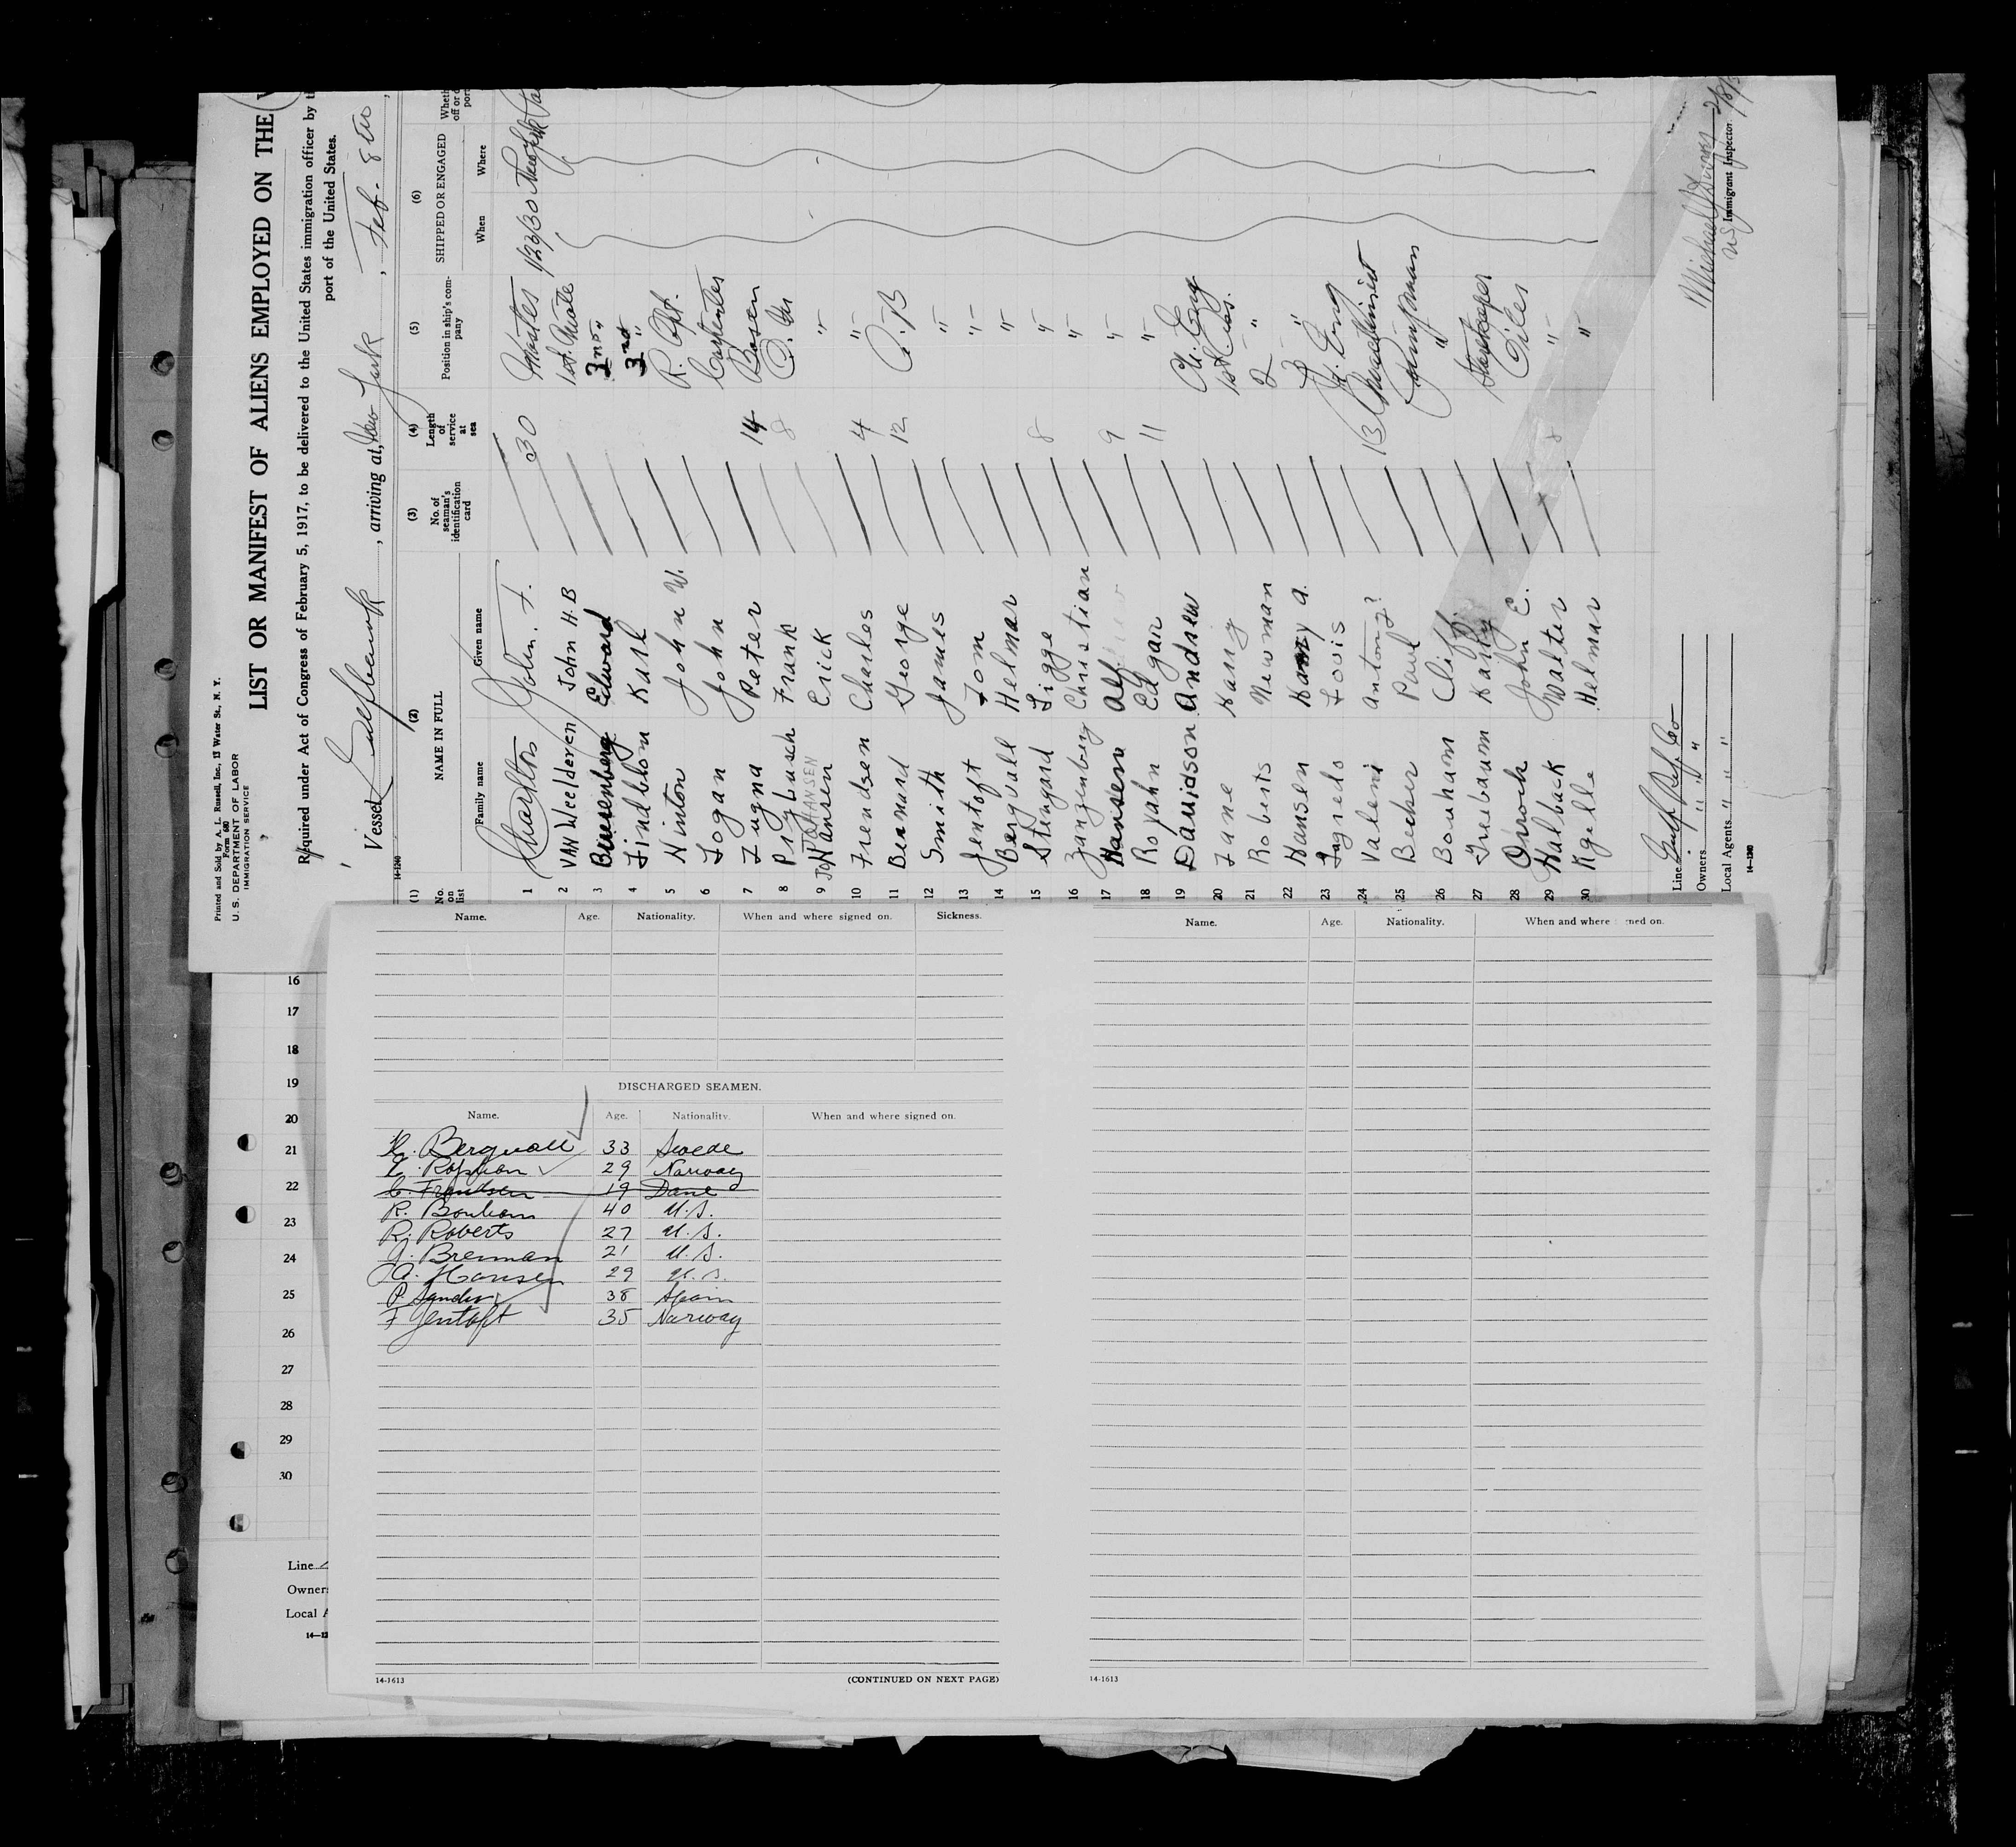 Printed and Sold by A. L. Russell, Inc., 13 Water St., N. Y.
Form 680
U. S. DEPARTMENT OF LABOR
IMMIGRATION SERVICE
LIST OR MANIFEST OF ALIENS EMPLOYED ON THE
Required under Act of Congress of February 5, 1917, to be delivered to the United States immigration officer by
port of the United States.
Vessel Gulfbeak, arriving at, New York, Feb. 8th
14-1240
(1) (2) (3) (4) (5) (6)
No. on list
NAME IN FULL
Family name Given name
No. of seaman's identification card
Length of service at sea
Position in ship's company
SHIPPED OR ENGAGED
When Where
1 Charlton John. F. 30 Master 1/23/30
2 VAN Weelderen John H. B 1st Mate
3 Edward 2nd "
4 Lindblom Karl 3rd "
5 Ninton John W. R. Opt.
6 Logan John Carpenter
7 Zugna Peter 14 Bosen
8 Prybusch Frank 8 Q. M
9 JOHANSEN Erick "
10 Frendsen Charles 4 "
11 George 12 A. B
12 Smith James "
13 Jentoft Tom "
14 Bergvall Helmar "
15 Stengard Sigge 8 "
16 Zanzenberg Christian "
17 Hansen Alf 9 "
18 Ropahn Edgar 11 "
19 Davidson Andrew Ch. Eng
20 Lane Harry 1st Ass.
21 Roberts Newman 2 "
22 Hansen Harry A. 3 "
23 Louis Jr. Eng
24 Valeni Antony? 13 Machinist
25 Becker Paul Pumpman
26 Bonham Cliff "
27 Greebaum Harry Storekeeper
28 Orrock John E. Oiler
29 Halback Walter 8 "
30 Kgelle Helmar "
Line Gulf Ref. Co
Owners " " "
Local Agents " " "
14-1240
Immigrant Inspector.
16
17
18
19
20
21
22
23
24
25
26
27
28
29
30
Line
Owners
Local A
14-12
Name. Age. Nationality. When and where signed on. Sickness.
DISCHARGED SEAMEN.
Name. Age. Nationality. When and where signed on.
H. Bergvall 33 Swede
E. Ropahn 29 Norway
C. Frendsen 19 Dane
R. Bonham 40 U.S.
R. Roberts 27 U.S.
J. Brennan 21 U.S.
A. Hansen 29 U.S.
P. 38 Spain
F Jentoft 35 Norway
14-1613 (CONTINUED ON NEXT PAGE)
Name. Age. Nationality. When and where signed on.
14-1613